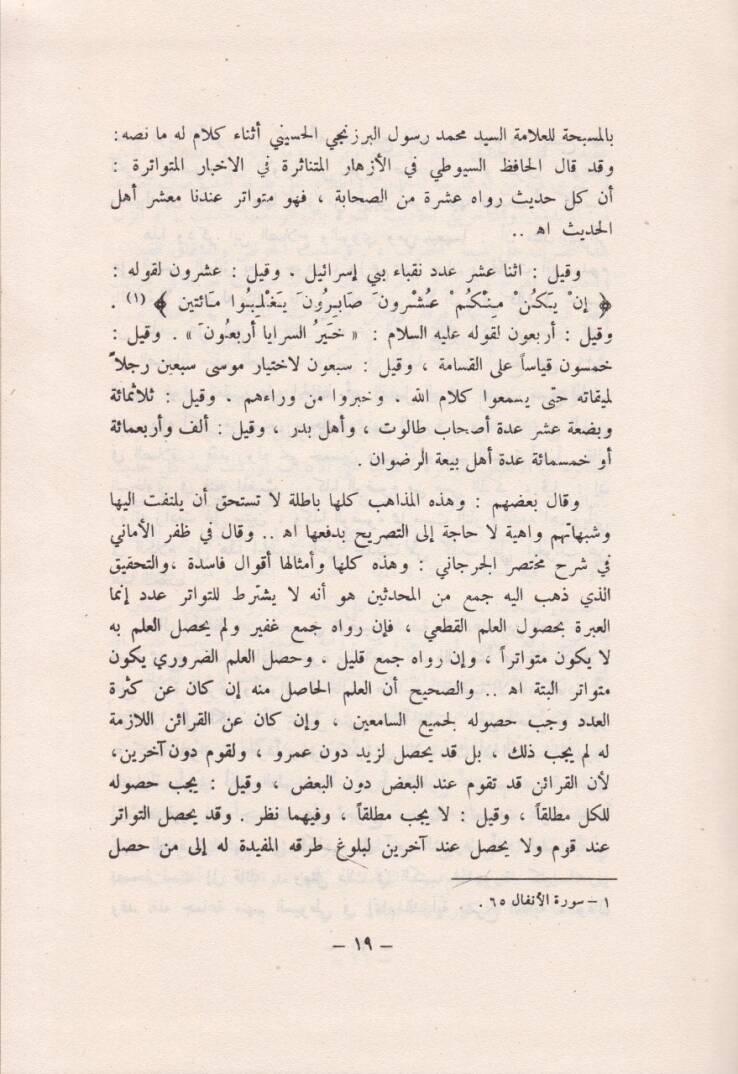 بالمسبحة للعلامة السيد محمد رسول البرزنجي الحسيني أثناء كلام له ما نصه :
وقد قال الحافظ السيوطي في الأزهار المتناثرة في الاخبار المتواترة :
أن كل حديث رواه عشرة من الصحابة ، فهو متواتر عندنا معشر أهل
الحديث اه ..
وقيل : اثنا عشر عدد نقباء بني إسرائيل . وقيل : عشرون لقوله :
﴿ إنْ يَكُنْ مِنْكُمْ عِشْرونَ صَابِرُونَ يَغْلِبُوا مَائتين ﴾ (١) .
وقيل : أربعون لقوله عليه السلام : « خَيرُ السرايا أربعُونَ » . وقيل :
خمسون قياساً على القسامة ، وقيل : سبعون لاختيار موسى سبعين رجلاً
لميقاته حتى يسمعوا كلام الله . وخبروا من وراءهم . وقيل : ثلاثمائة
وبضعة عشر عدة أصحاب طالوت ، وأهل بدر ، وقيل : ألف وأربعمائة
أو خمسمائة عدة أهل بيعة الرضوان .
وقال بعضهم : وهذه المذاهب كلها باطلة لا تستحق أن يلتفت اليها
وشبهاتهم واهية لا حاجة إلى التصريح بدفعها اه .. وقال في ظفر الأماني
في شرح مختصر الجرجاني : وهذه كلها وأمثالها أقوال فاسدة ،والتحقيق
الذي ذهب اليه جمع من المحدثين هو أنه لا يشترط للتواتر عدد إنما
العبرة بحصول العلم القطعي ، فإن رواه جمع غفير ولم يحصل العلم به
لا يكون متواتراً ، وإن رواه جمع قليل . وحصل العلم الضروري يكون
متواتر البتة اه .. والصحيح أن العلم الحاصل منه إن كان عن كثرة
العدد وجب حصوله لجميع السامعين ، وإن كان عن القرائن اللازمة
له لم يجب ذلك ، بل قد يحصل لزيد دون عمرو ، ولقوم دون آخرين،
لأن القرائن قد تقوم عند البعض دون البعض ، وقيل : يجب حصوله
للكل مطلقاً ، وقيل : لا يجب مطلقاً ، وفيهما نظر . وقد يحصل التواتر
عند قوم ولا يحصل عند آخرين لبلوغ طرقه المفيدة له إلى من حصل
١ – سورة الأنفال ٦٥ .
– ١٩ –